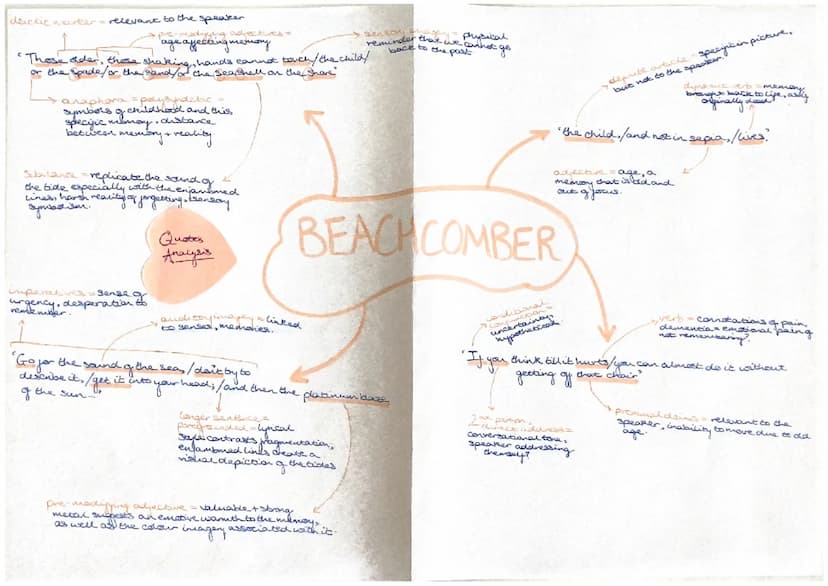 deictic marker = relevant to the speaker
pre-modifying adjectives =
age affecting memory
sensory imagery = physical
reminder that we cannot go
back to the past
"Those older, those shaking, hands cannot touch/the child/
or the spade/or the sand/or the seashell on the shore"
anaphora = polysyndetic =
symbols of childhood and this
specific memory, distance
between memory + reality
sibilance = replicate the sound of
the tide especially with the enjammed
lines, harsh reality of forgetting, sensory
symbolism.
Quotes
Analysis
BEACHCOMBER
definite article = specific in picture,
but not to the speaker?
dynamic verb = memory
brought back to life,
originally dead?
"the child,/and not in sepia,/lives"
adjective = age, a
memory that is old and
out of focus.
imperatives = sense of
urgency, desperation to
remember.
auditory imagery = linked
to senses, memories.
"Go for the sound of the sea,/don't try to
describe it,/get it into your head;/and then the platinum blaze
of the sun.."
longer sentences =
foregrounded = lyrical
style contrasts fragmentation,
enjambed lines create a
visual depiction of the tides
pre-modifying adjective = valuable + strong
metal suggests an emotive warmth to the memory,
as well as the colour imagery associated with it.
conditional
conjunction =
uncertainty,
hypothetical
verb = connotations of pain,
dementia = emotional pain of
not remembering?
"If you think till it hurts/you can almost do it without
getting off that chair"
2nd person,
direct address =
conversational tone,
speaker addressing
themself?
proximal deixis = relevant to the
speaker, inability to move due to old
age.